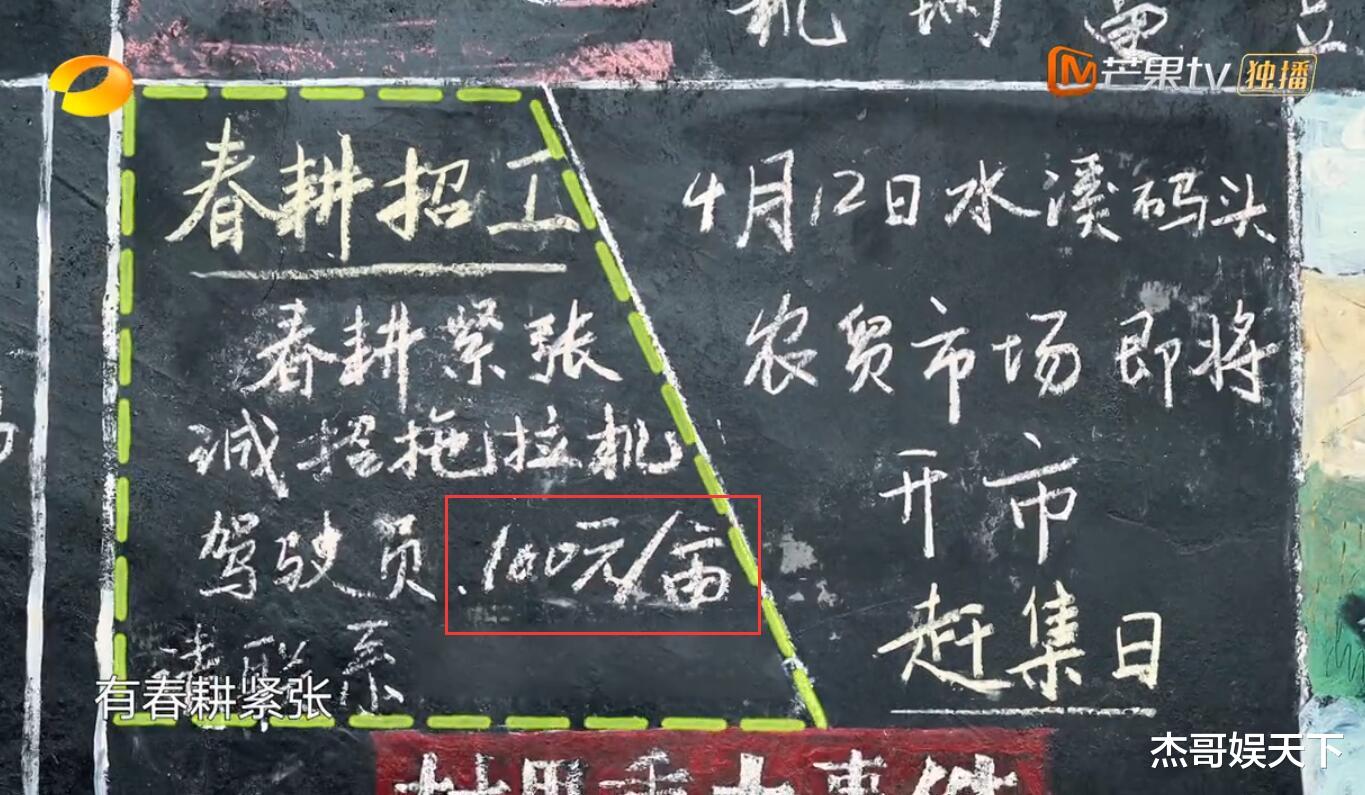 芒果tv 独播
春耕招工
春耕紧张
诚招拖拉机
驾驶员.100元/亩
请联系
4月12日水溪码头
农贸市场即将
开市
赶集日
有春耕紧张
杰哥娱天下